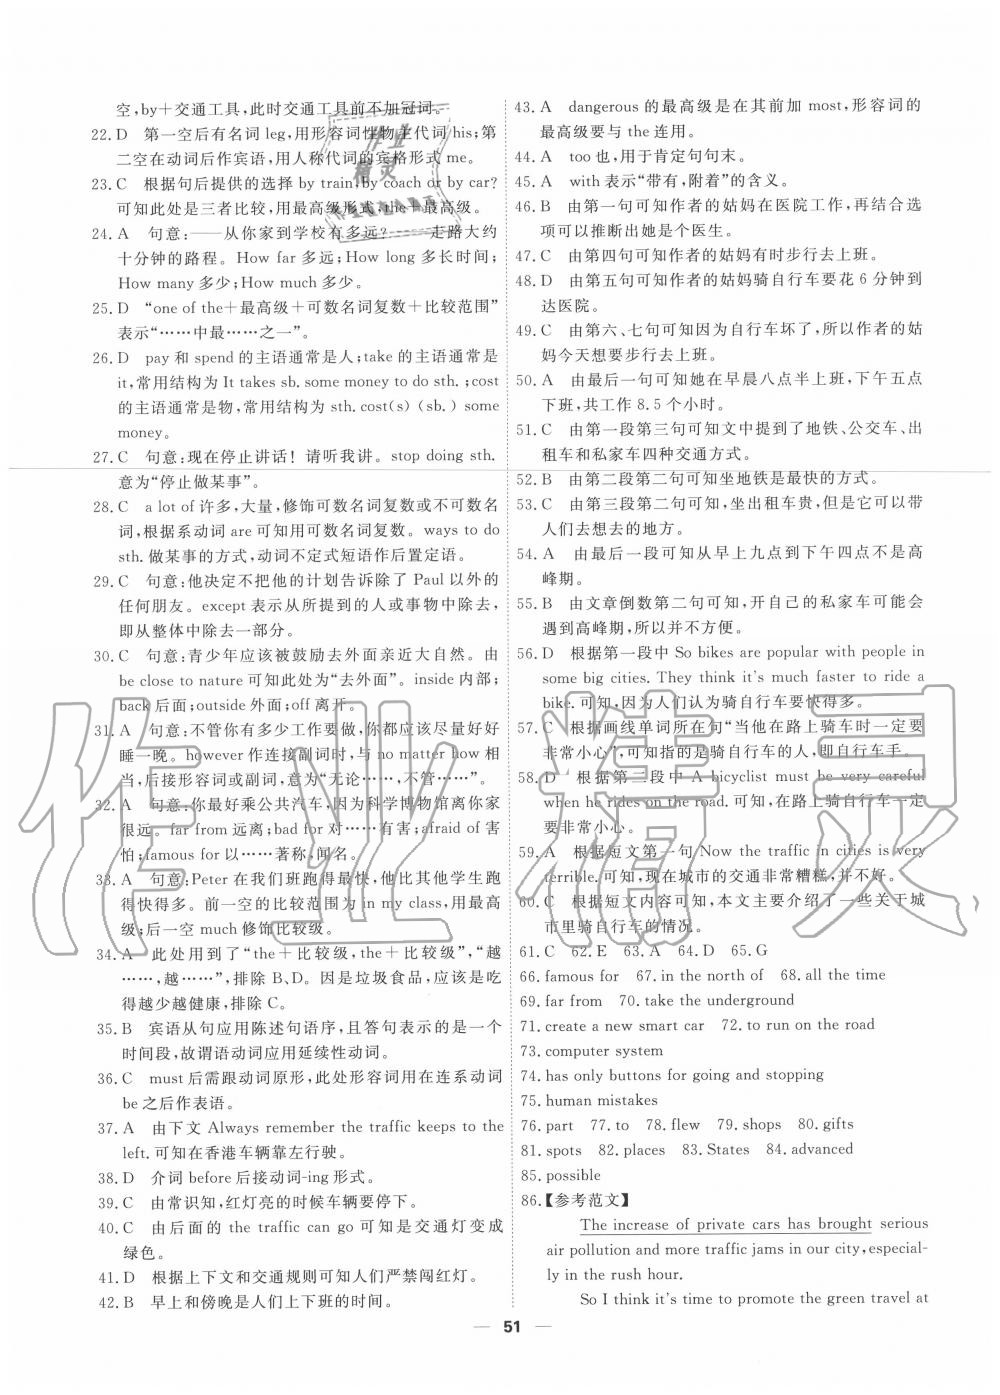 空,by＋交通工具,此时交通工具前不加冠词。
22. D　第一空后有名词 leg,用形容词性物主代词 his;第
二空在动词后作宾语,用人称代词的宾格形式 me。
23. C　根据句后提供的选择 by train, by coach or by car?
可知此处是三者比较,用最高级形式,the＋最高级。
24. A　句意:——从你家到学校有多远? ——走路大约
十分钟的路程。How far 多远;How long 多长时间;
How many 多少;How much 多少。
25. D　“one of the＋最高级＋可数名词复数＋比较范围”
表示“……中最……之一”。
26. D　pay 和 spend 的主语通常是人;take 的主语通常是
it,常用结构为 It takes sb. some money to do sth. ;cost
的主语通常是物,常用结构为 sth. cost(s) (sb.) some
money。
27. C　句意:现在停止讲话！请听我讲。stop doing sth.
意为“停止做某事”。
28. C　a lot of 许多,大量,修饰可数名词复数或不可数名
词,根据系动词 are 可知用可数名词复数。ways to do
sth. 做某事的方式,动词不定式短语作后置定语。
29. C　句意:他决定不把他的计划告诉除了 Paul 以外的
任何朋友。except 表示从所提到的人或事物中除去,
即从整体中除去一部分。
30. C　句意:青少年应该被鼓励去外面亲近大自然。由
be close to nature 可知此处为“去外面”。inside 内部;
back 后面;outside 外面;off 离开。
31. A　句意:不管你有多少工作要做,你都应该尽量好好
睡一晚。however 作连接副词时,与 no matter how 相
当,后接形容词或副词,意为“无论……,不管……”。
32. A　句意:你最好乘公共汽车,因为科学博物馆离你家
很远。far from 远离;bad for 对……有害;afraid of 害
怕;famous for 以……著称,闻名。
33. A　句意:Peter 在我们班跑得最快,他比其他学生跑
得快得多。前一空的比较范围为 in my class,用最高
级;后一空 much 修饰比较级。
34. A　此处用到了“the＋比较级,the＋比较级”,“越
……,越……”,排除 B、D。因是垃圾食品,应该是吃
得越少越健康,排除 C。
35. B　宾语从句应用陈述句语序,且答句表示的是一个
时间段,故谓语动词应用延续性动词。
36. C　must 后需跟动词原形,此处形容词用在连系动词
be 之后作表语。
37. A　由下文 Always remember the traffic keeps to the
left. 可知在香港车辆靠左行驶。
38. D　介词 before 后接动词-ing 形式。
39. C　由常识知,红灯亮的时候车辆要停下。
40. C　由后面的 the traffic can go 可知是交通灯变成
绿色。
41. D　根据上下文和交通规则可知人们严禁闯红灯。
42. B　早上和傍晚是人们上下班的时间。
43. A　dangerous 的最高级是在其前加 most,形容词的
最高级要与 the 连用。
44. A　too 也,用于肯定句句末。
45. A　with 表示“带有,附着”的含义。
46. B　由第一句可知作者的姑妈在医院工作,再结合选
项可以推断出她是个医生。
47. C　由第四句可知作者的姑妈有时步行去上班。
48. D　由第五句可知作者的姑妈骑自行车要花 6 分钟到
达医院。
49. C　由第六、七句可知因为自行车坏了,所以作者的姑
妈今天想要步行去上班。
50. A　由最后一句可知她在早晨八点半上班,下午五点
下班,共工作 8.5 个小时。
51. C　由第一段第三句可知文中提到了地铁、公交车、出
租车和私家车四种交通方式。
52. B　由第二段第二句可知坐地铁是最快的方式。
53. C　由第三段第二句可知,坐出租车贵,但是它可以带
人们去想去的地方。
54. A　由最后一段可知从早上九点到下午四点不是高
峰期。
55. B　由文章倒数第二句可知,开自己的私家车可能会
遇到高峰期,所以并不方便。
56. D　根据第一段中 So bikes are popular with people in
some big cities. They think it's much faster to ride a
bike. 可知,因为人们认为骑自行车要快得多。
57. C　根据画线单词所在句“当他在路上骑车时一定要
非常小心”,可知指的是骑自行车的人,即自行车手。
58. D　根据第二段中 A bicyclist must be very careful
when he rides on the road. 可知,在路上骑自行车一定
要非常小心。
59. A　根据短文第一句 Now the traffic in cities is very
terrible. 可知,现在城市的交通非常糟糕,并不好。
60. C　根据短文内容可知,本文主要介绍了一些关于城
市里骑自行车的情况。
61. C　62. E　63. A　64. D　65. G
66. famous for　67. in the north of　68. all the time
69. far from　70. take the underground
71. create a new smart car　72. to run on the road
73. computer system
74. has only buttons for going and stopping
75. human mistakes
76. part　77. to　78. flew　79. shops　80. gifts
81. spots　82. places　83. States　84. advanced
85. possible
86.【参考范文】
The increase of private cars has brought serious
air pollution and more traffic jams in our city, especial-
ly in the rush hour.
So I think it's time to promote the green travel at
— 51 —
作业精灵
作业
精灵